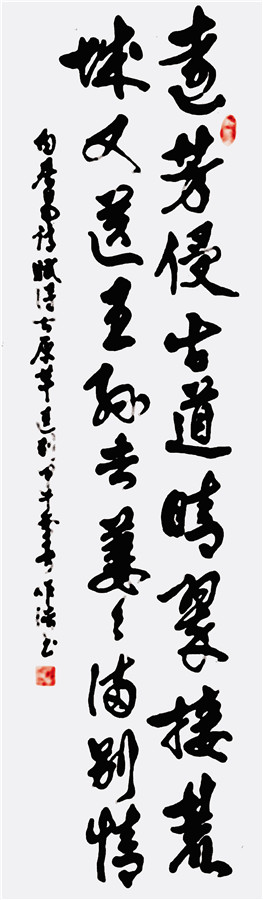 遠芳侵古道晴翠接荒
城又送王孫去萋々滿别情
白居易詩賦得古原草送别